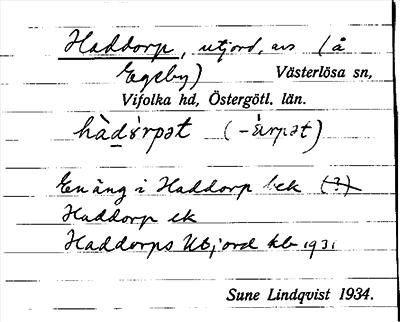 Haddorp, utjord, avs (å
Egeby) Västerlösa sn,
Vifolka hd, Östergötl. län.
En äng i Haddorp bek (?)
Haddorp ek
Haddorps Utjord kb 1931
Sune Lindqvist 1934.